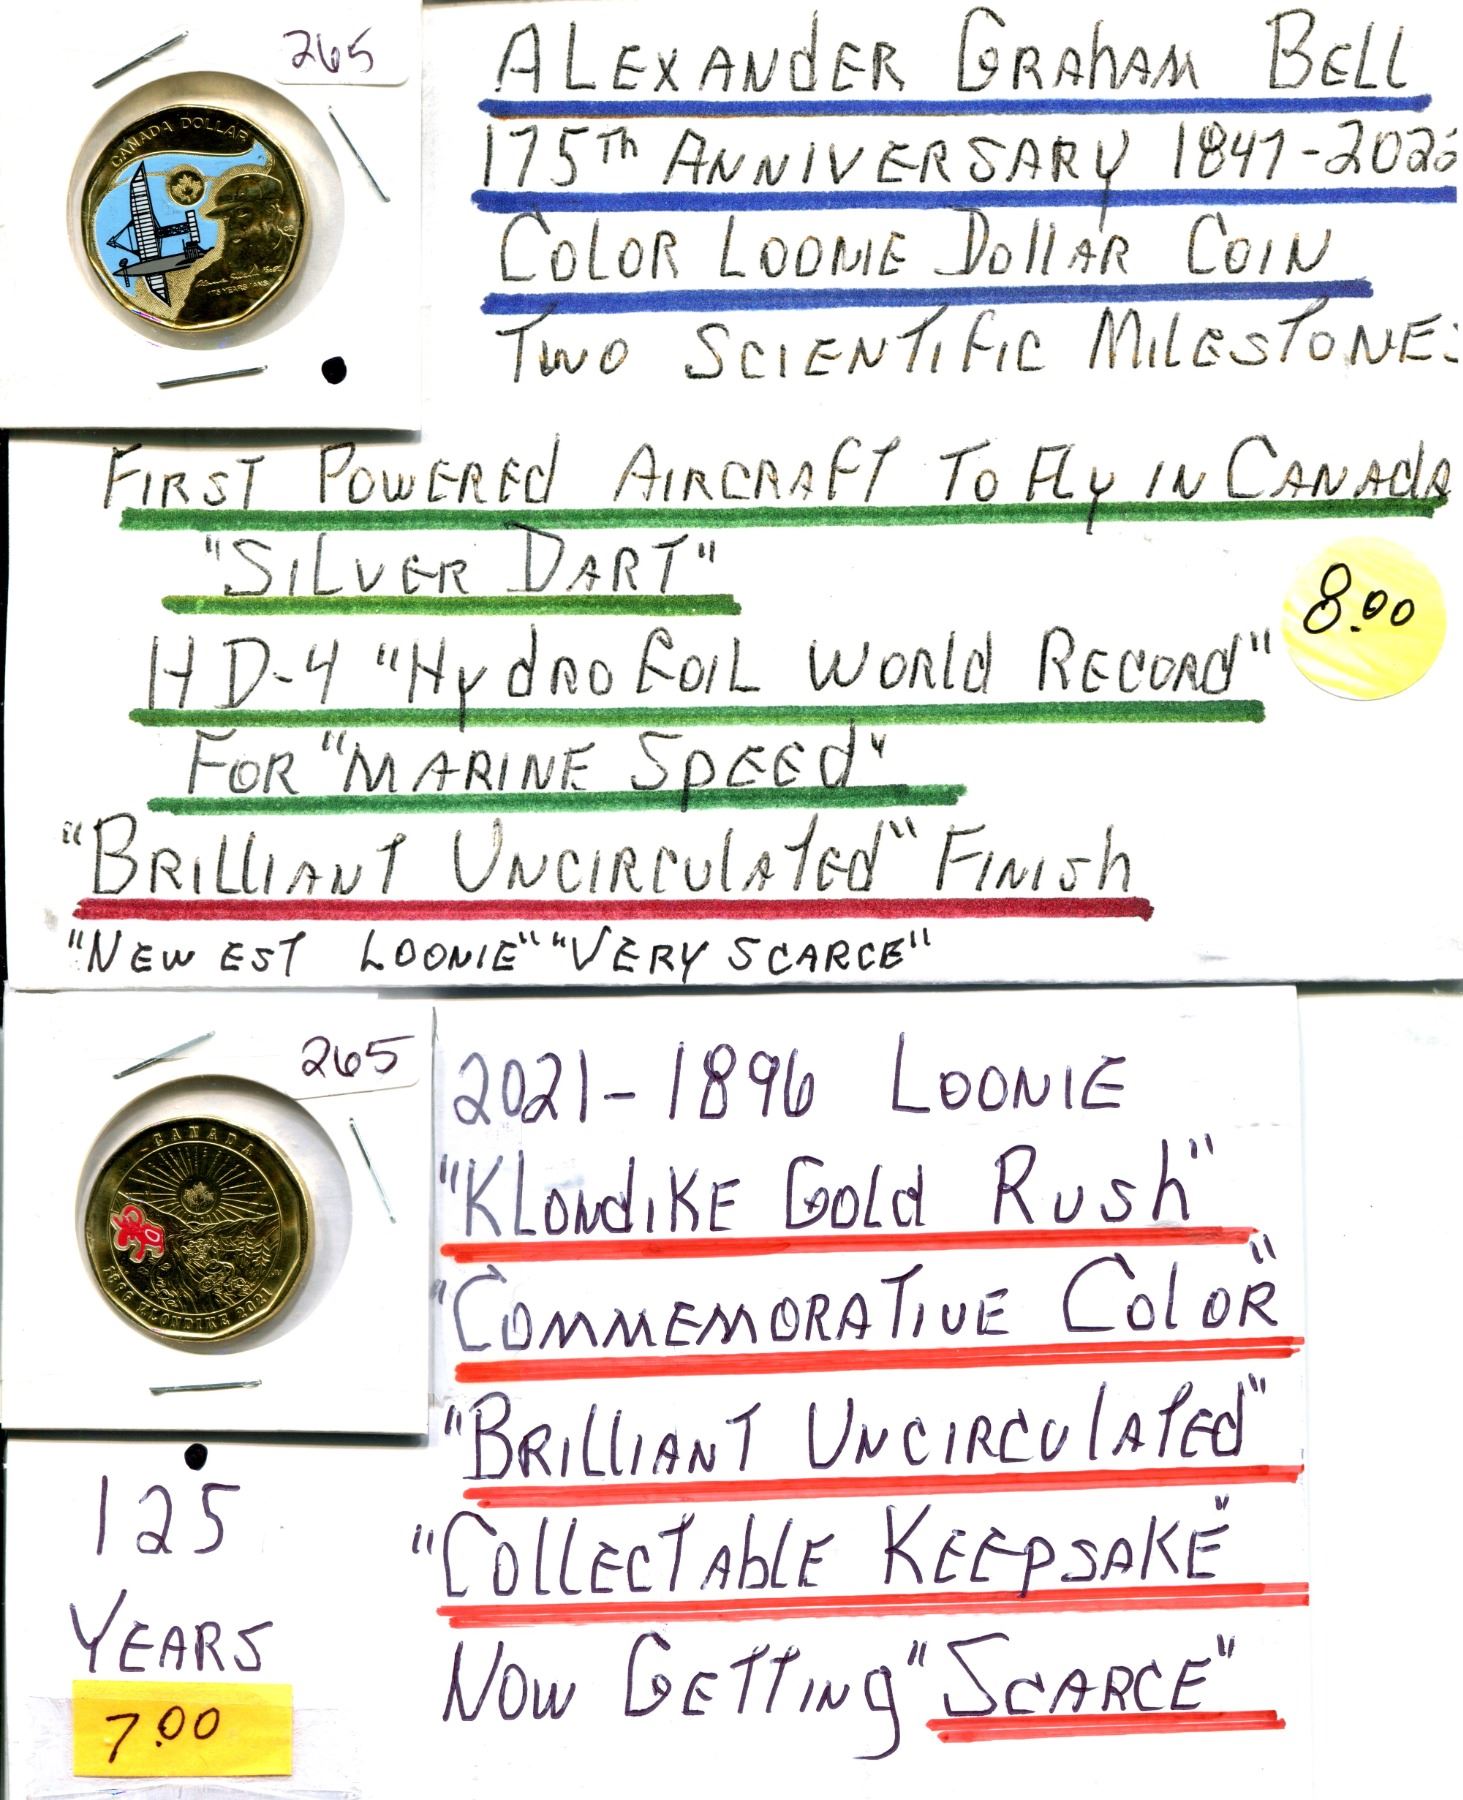 265
CANADA DOLLAR
175 YEARS / ANS
ALEXANDER GRAHAM BELL
175TH ANNIVERSARY 1847-202
COLOR LOONIE DOLLAR COIN
TWO SCIENTIFIC MILESTONE
FIRST POWERED AIRCRAFT TO FLY IN CANADA
"SILVER DART"
8.00
HD-4 "HYDROFOIL WORLD RECORD"
FOR "MARINE SPEED"
"BRILLIANT UNCIRCULATED" FINISH
"NEWEST LOONIE" "VERY SCARCE"
265
CANADA
1896 KLONDIKE 2021
2021-1896 LOONIE
"KLONDIKE GOLD RUSH"
"COMMEMORATIVE COLOR"
"BRILLIANT UNCIRCULATED"
"COLLECTABLE KEEPSAKE"
NOW GETTING "SCARCE"
125
YEARS
7.00